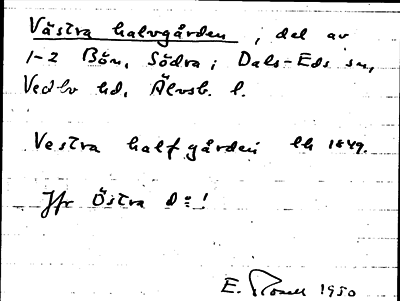 Västra halvgården, del av
1-2 Bön, Södra i Dals-Eds sn,
Vedbo hd, Älvsb. l.
Vestra halfgården lh 1849.
Jfr Östra d:o!
E. 1950